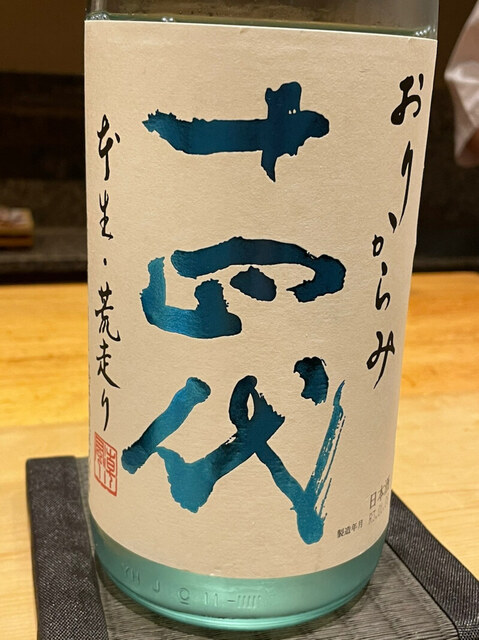 おりからみ
十四代
本生・荒走り
日本酒
製造年月